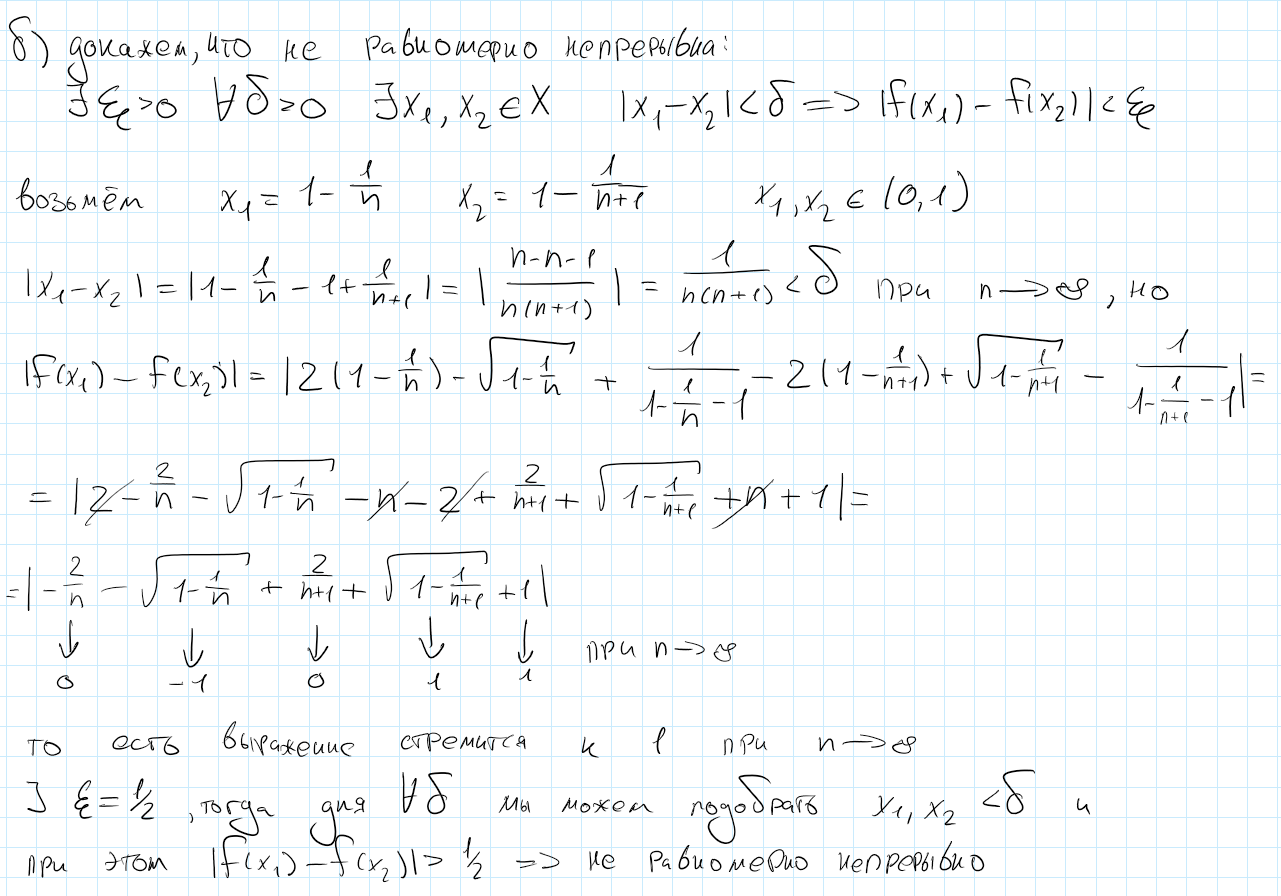 б) докажем, что не равномерно непрерывна:
∃ε>0 ∀δ>0 ∃x₁, x₂ ∈ X |x₁-x₂|<δ => |f(x₁) - f(x₂)|<ε
возьмём x₁ = 1 - 1/n x₂ = 1 - 1/(n+1) x₁, x₂ ∈ (0,1)
|x₁-x₂| = |1 - 1/n - 1 + 1/(n+1)| = |(n-n-1)/(n(n+1))| = 1/(n(n+1)) < δ при n→∞, но
|f(x₁) - f(x₂)| = |2(1 - 1/n) - √(1 - 1/n) + 1/(1 - 1/n - 1) - 2(1 - 1/(n+1)) + √(1 - 1/(n+1)) - 1/(1 - 1/(n+1) - 1)| =
= |2 - 2/n - √(1 - 1/n) - n - 2 + 2/(n+1) + √(1 - 1/(n+1)) + n + 1| =
= |- 2/n - √(1 - 1/n) + 2/(n+1) + √(1 - 1/(n+1)) + 1|
↓ ↓ ↓ ↓ ↓ при n→∞
0 -1 0 1 1
то есть выражение стремится к 1 при n→∞
∃ ε = 1/2, тогда для ∀δ мы можем подобрать x₁, x₂ <δ и
при этом |f(x₁) - f(x₂)| > 1/2 => не равномерно непрерывно